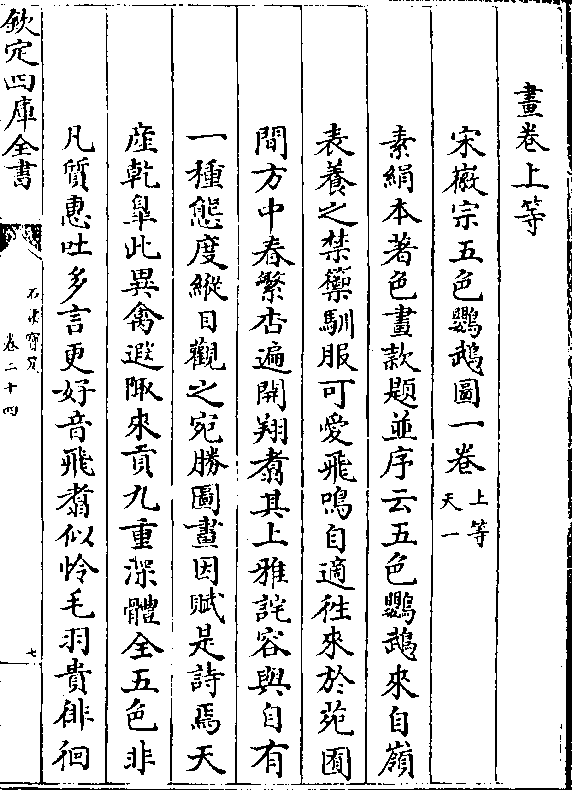 畫卷上等
宋徽宗五色鸚鵡圖一卷 上等
天一
素絹本著色畫款題並序云五色鸚鵡來自嶺
表養之禁籞馴服可愛飛鳴自適徃來於苑囿
間方中春繁杏遍開翔翥其上雅詫容與自有
一種態度縱目觀之宛勝圖畫因賦是詩焉天
産乾臯此異禽遐陬來貢九重深體全五色非
凡質惠吐多言更好音飛翥似怜毛羽貴徘徊
欽定四庫全書
石渠寳笈
卷二十四
七